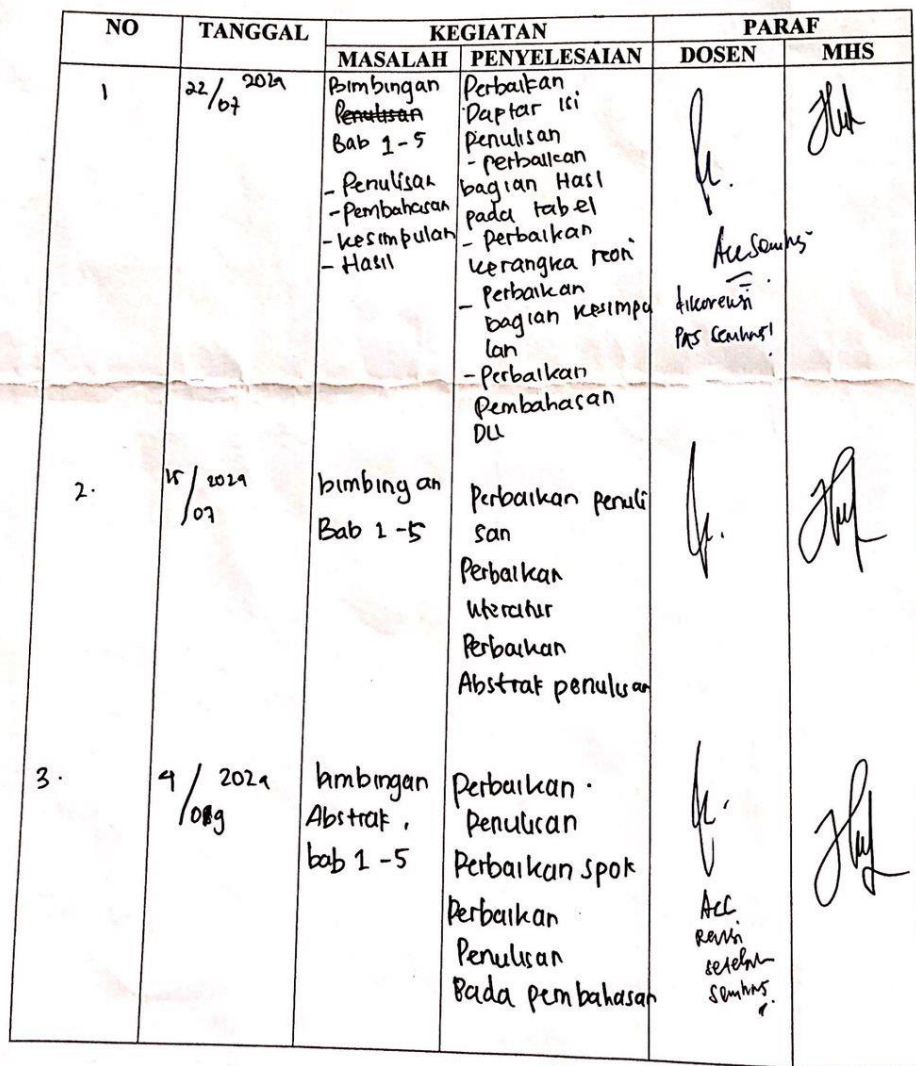 NO TANGGAL KEGIATAN PARAF
MASALAH PENYELESAIAN DOSEN MHS
1
22/07 2024
Bimbingan
Penulisan
Bab 1-5
- Penulisan
- Pembahasan
- kesimpulan
- Hasil
Perbaikan
Daptar isi
Penulisan
- perbaikan
bagian Hasl
pada tabel
- perbaikan
kerangka teori
- Perbaikan
bagian kesimpu
lan
- Perbaikan
Pembahasan
DLL
Acc Semhas
dikoreksi
pas semhas!
2.
2024
/07
bimbingan
Bab 1-5
Perbaikan penuli
san
Perbaikan
literatur
Perbaikan
Abstrak penulisan
3.
2024
bimbingan
Abstrak,
bab 1-5
Perbaikan
Penulisan
Perbaikan spok
Perbaikan
Penulisan
Pada pembahasan
Acc
revisi
setelah
semhas